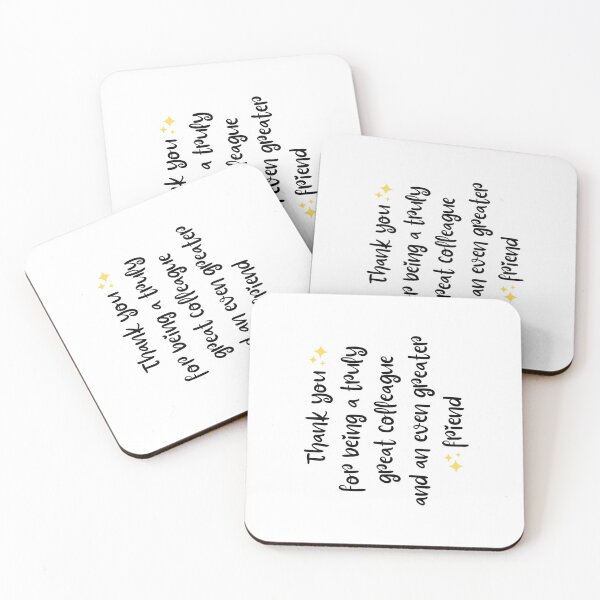 you
a truly
league
even greater
friend
Thank you
being a truly
great colleague
an even greater
friend
Thank you
for being a truly
great colleague
an even greater
friend
Thank you
for being a truly
great colleague
and an even greater
friend